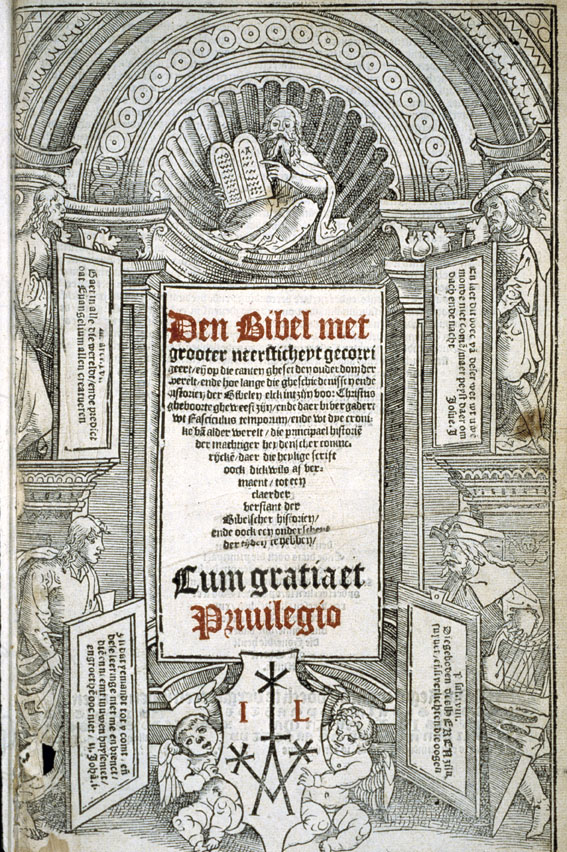 Den Bibel met
grooter neersticheyt gecorri
geert/ eñ op die canten gheset den ouderdom der
werelt/ ende hoe lange die gheschiedenissen ende
historien/ der Bibelen elck int zijn voor Christus
gheboorte gheweest zijn/ ende daer bi vergadert
wt Fasciculus temporum/ ende wt dye croni-
ke van alder werelt/ die principael historiē
der machtiger heydenscher coninc-
rijckē/ daer die heylige scrift
oock dickwils af ver-
maent/ tot een
claerder
verstant der
Bibelscher historien/
ende oock een onderscheyt
der tijden te hebben/
Cum gratia et
Privilegio
I L
Gaet in alle die werelt/ ende predict
dat Euangelium allen creatueren
Josue. i.
Psal. xviij.
Die geboden des HEREN zijn
ende verlichten die oogen